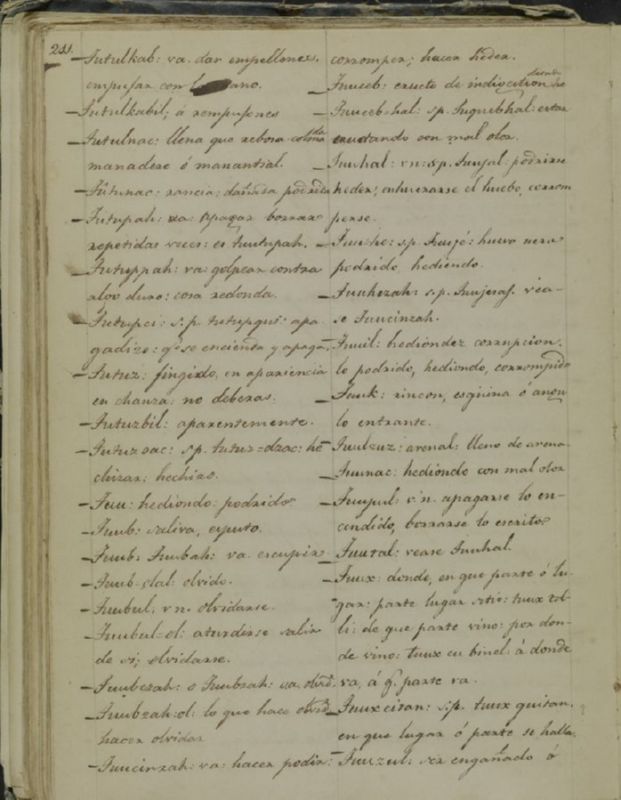 211.
— Tutulkab: va. dar empellones.
empujar con mano.
— Tutulkabil; á rempujones
— Tutulnac: llena que rebosa
manadero ó manantial.
— Tutunac: rancia: dañada podrida
— Tutupah: va: apagar borrar
repetidas veces: es tuutupah.
— Tutuppah: va: golpear contra
algo duro: cosa redonda.
— Tutupci: s.p. tutupqui: apa
gadizo: qe. se encienta y apaga.
— Tutuz: fingido, en apariencia
en chanza: no deberas.
— Tutuzbil: aparentemente.
— Tutuzsac: s.p. tutuz=dzac: he
chizar: hechizo.
— Tuu: hediondo: podrido
— Tuub: saliva, esputo.
— Tuub. Tuubah: va. escupir
— Tuub-olal: olvido.
— Tuubul: vn. olvidarse.
— Tuubul=ol: aturdirse salir
de si; olvidarse.
— Tuubzah: o Tuubsah: va. olvid.
— Tuubzah-ol: lo que hace olvid.
hacer olvidar
— Tuucinzah: va: hacer podrir:
corromper; hacer heder.
— Tuuceb: eructo de indigestion
— Tuuceb-hal: s.p. Tuquebhal: estar
eructando con mal olor.
— Tuuhal: vn: s.p. Tuujal: podrirse
heder; enhuerarse el huebo, corrom
perse.
— Tuuhe: s.p. Tuujé: huevo uero
podrido, hediendo.
— Tuuhzah: s.p. Tuujesaj. vea-
se Tuucinzah.
— Tuuil: hediondez corrupcion.
lo podrido, hediondo, corrompido
— Tuuk: rincon, esquina ó angu
lo entrante.
— Tuuluz: arenal: lleno de arena
— Tuunac: hediondo con mal olor
— Tuupul: v.n. apagarse lo en-
cendido, borrarse lo escrito
— Tuutal: vease Tuuhal.
— Tuux: donde, en que parte ó lu-
gar: parte lugar sitio: tuux tal-
li: de que parte vino: por don-
de vino: tuux cu binel: á donde
va, á q. parte va.
— Tuuxcitan: s.p. tuux quitan.
en que lugar ó parte se halla.
— Tuuzul: ser engañado ó